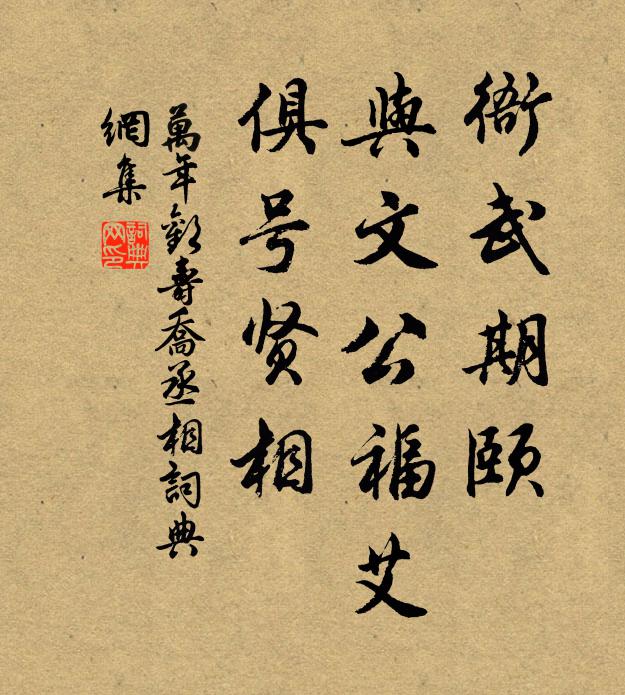 衛武期颐
與文公福艾
俱号贤相
萬年歡壽喬丞相詞典
網集
詞典
网印